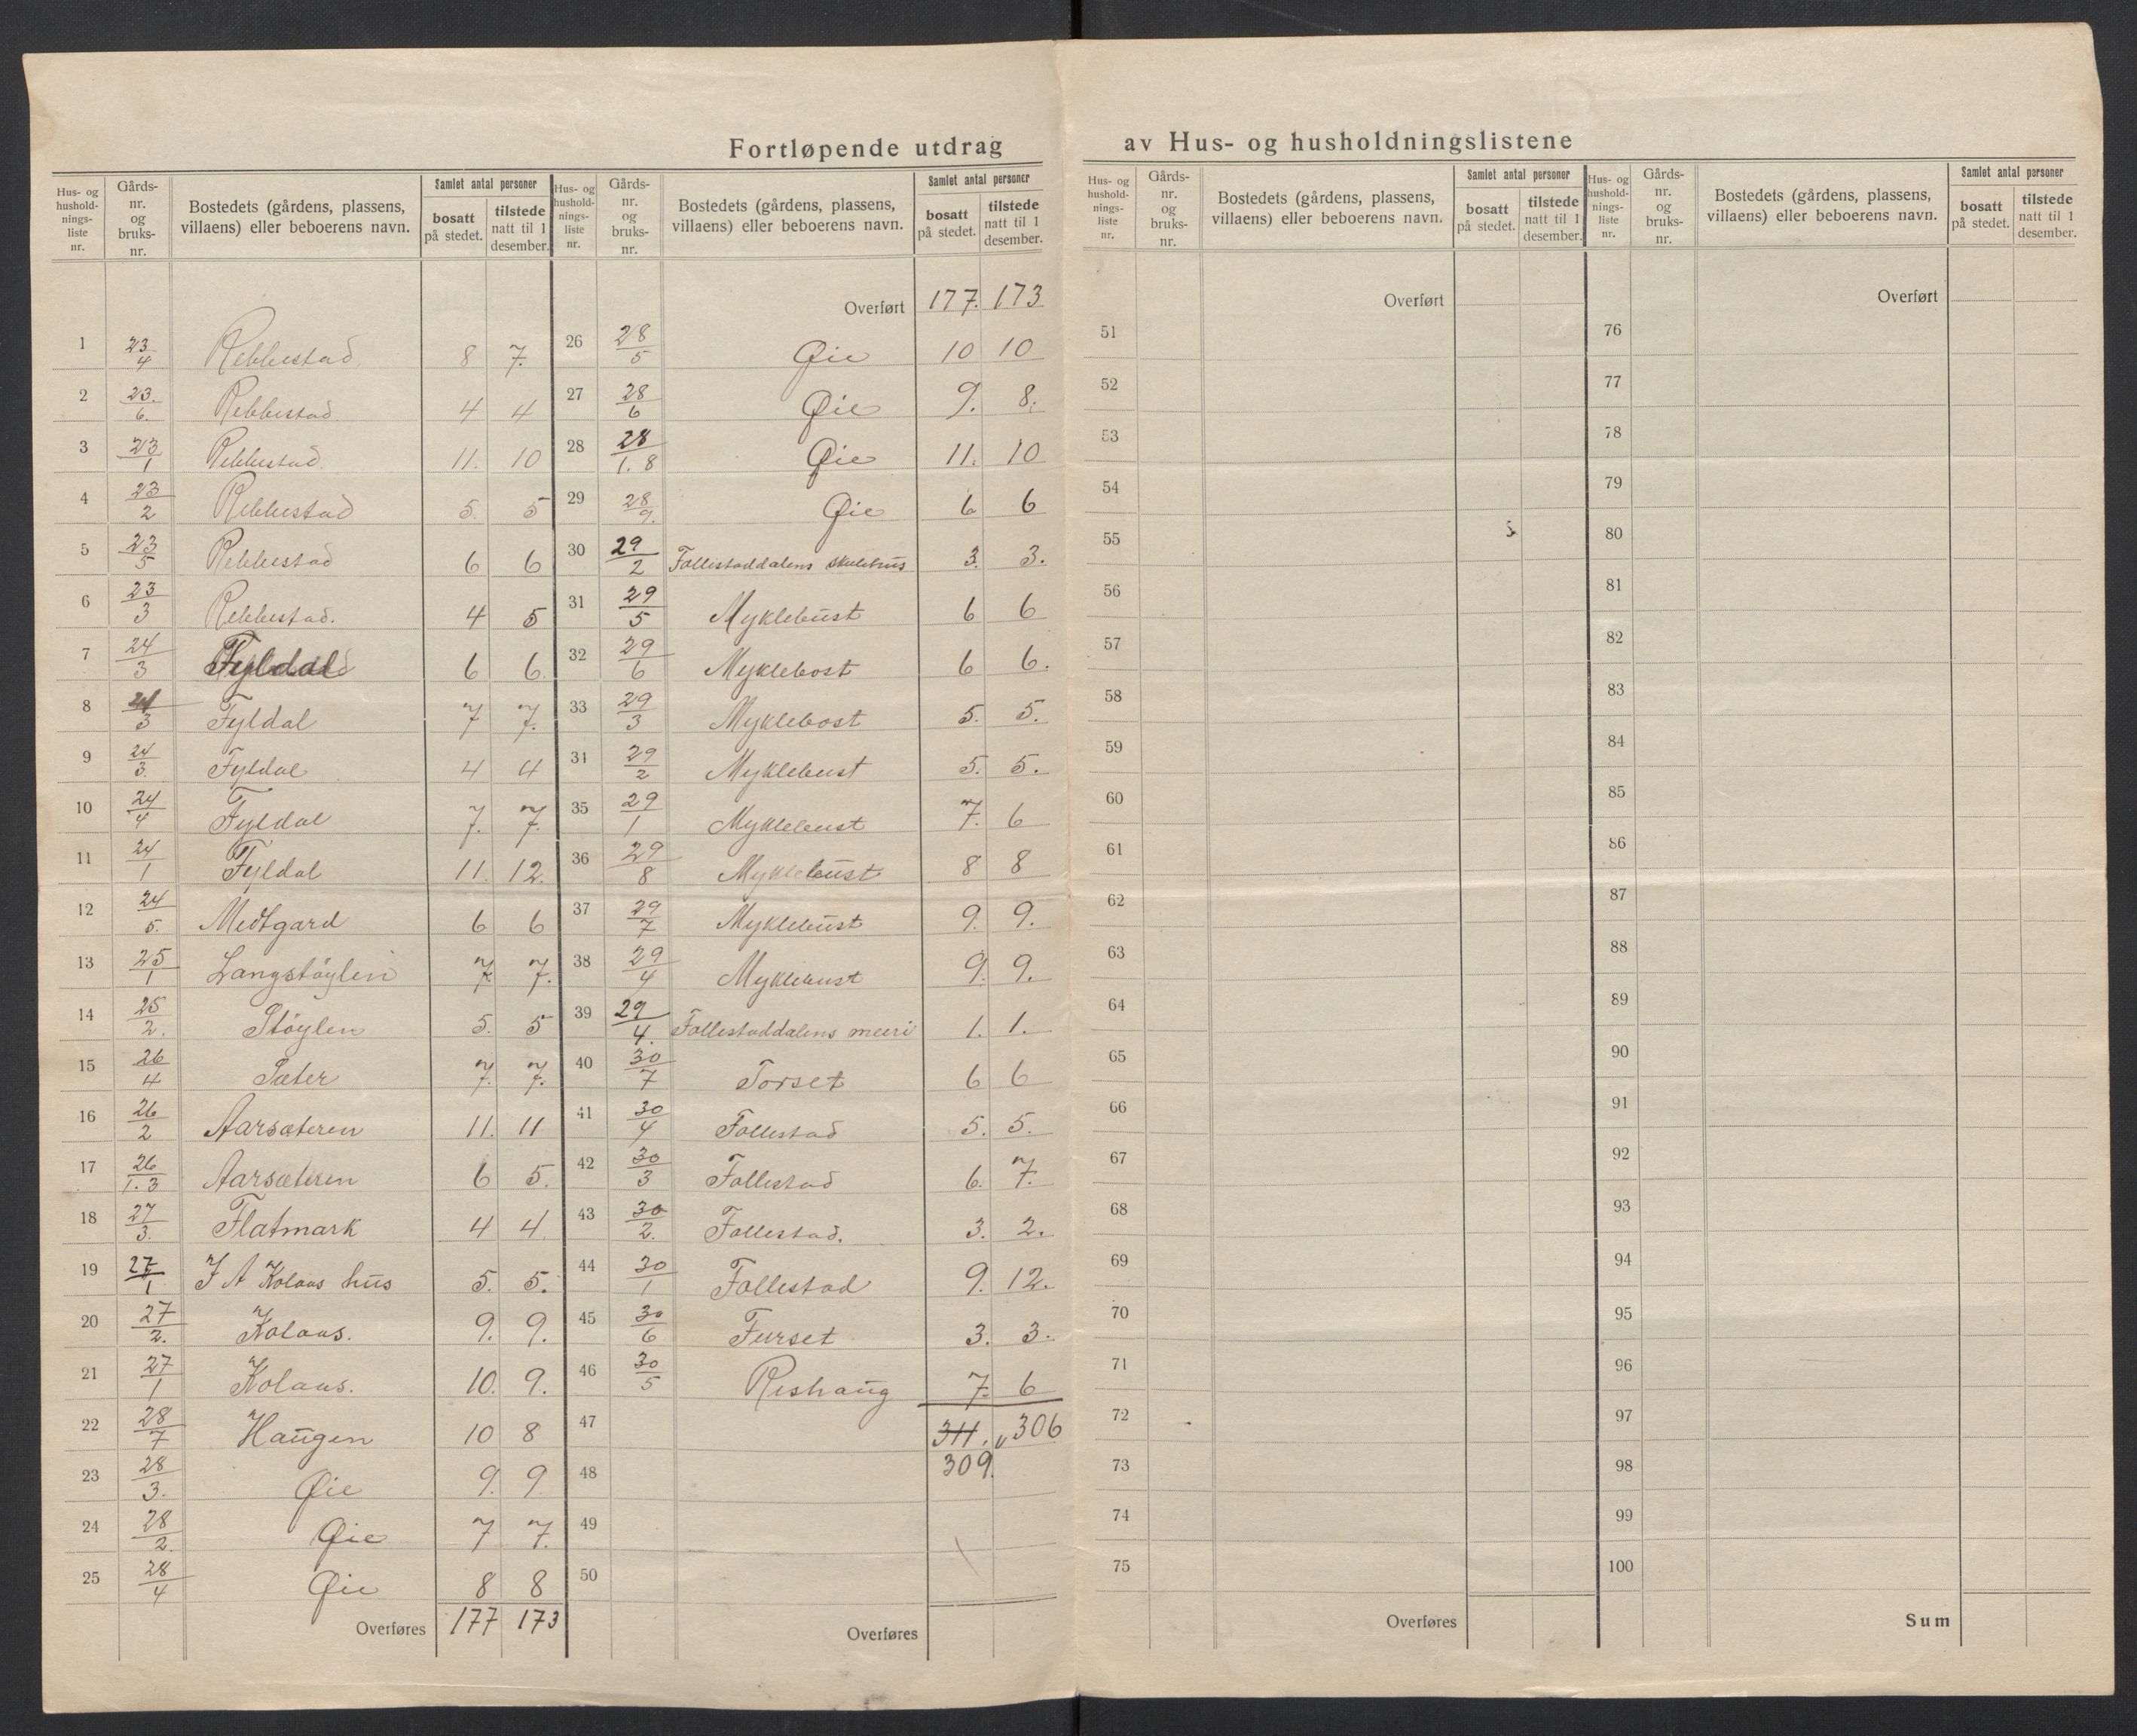 Fortløpende utdrag av Hus- og husholdningslistene
Hus- og husholdnings-liste nr. | Gårds-nr. og bruks-nr. | Bostedets (gårdens, plassens, villaens) eller beboerens navn. | Samlet antal personer | bosatt på stedet. | tilstede natt til 1 desember.
1 23/4 Rebbestad. 8 7.
2 23./6. Rebbestad 4 4
3 23/1 Rebbestad. 11. 10
4 23/2 Rebbestad 5. 5
5 23/5 Rebbestad 6 6
6 23/3 Rebbestad. 4 5
7 24/3 Fyldal 6 6.
8 24/3 Fyldal 7 7.
9 24/3. Fyldal 4 4
10 24/4 Fyldal 7. 7.
11 24/1 Fyldal 11. 12.
12 24/5. Medtgard 6 6
13 25/1 Langstöylen 7. 7.
14 25/2. Stöylen 5. 5
15 26/4 Sæter 7. 7.
16 26/2 Aarsæteren 11. 11
17 26/1.3 Aarsæteren 6 5.
18 27/3. Flatmark 4 4
19 27/1 J A Kolaas hus 5. 5.
20 27/2. Kolaas. 9. 9.
21 27/1 Kolaas. 10. 9.
22 28/7 Haugen 10 8
23 28/3. Øie 9. 9.
24 28/2. Øie 7 7.
25 28/4 Øie 8 8
Overføres 177 173
Hus- og husholdnings-liste nr. | Gårds-nr. og bruks-nr. | Bostedets (gårdens, plassens, villaens) eller beboerens navn. | Samlet antal personer | bosatt på stedet. | tilstede natt til 1 desember.
Overført 177. 173
26 28/5 Øie 10 10
27 28/6 Øie 9. 8.
28 28/1.8 Øie 11. 10
29 28/9. Øie 6 6
30 29/2 Follestaddalens skulehus 3. 3.
31 29/5 Myklebust 6 6
32 29/6 Myklebost 6 6.
33 29/3 Myklebost 5. 5.
34 29/2 Myklebust 5. 5.
35 29/1 Myklebust 7. 6
36 29/8 Myklebust 8 8
37 29/7 Myklebust 9. 9.
38 29/4 Myklebust 9. 9.
39 29/4. Follestaddalens meieri 1. 1.
40 30/7 Torset 6 6
41 30/4 Follestad 5. 5.
42 30/3 Follestad 6. 7.
43 30/2. Follestad. 3. 2.
44 30/1 Follestad 9. 12.
45 30/6 Furset 3. 3.
46 30/5 Rishaug 7. 6
47 311. 306
48 309.
49
50
Overføres
Hus- og husholdnings-liste nr. | Gårds-nr. og bruks-nr. | Bostedets (gårdens, plassens, villaens) eller beboerens navn. | Samlet antal personer | bosatt på stedet. | tilstede natt til 1 desember.
Overført
51
52
53
54
55
56
57
58
59
60
61
62
63
64
65
66
67
68
69
70
71
72
73
74
75
Overføres
Hus- og husholdnings-liste nr. | Gårds-nr. og bruks-nr. | Bostedets (gårdens, plassens, villaens) eller beboerens navn. | Samlet antal personer | bosatt på stedet. | tilstede natt til 1 desember.
Overført
76
77
78
79
80
81
82
83
84
85
86
87
88
89
90
91
92
93
94
95
96
97
98
99
100
Sum